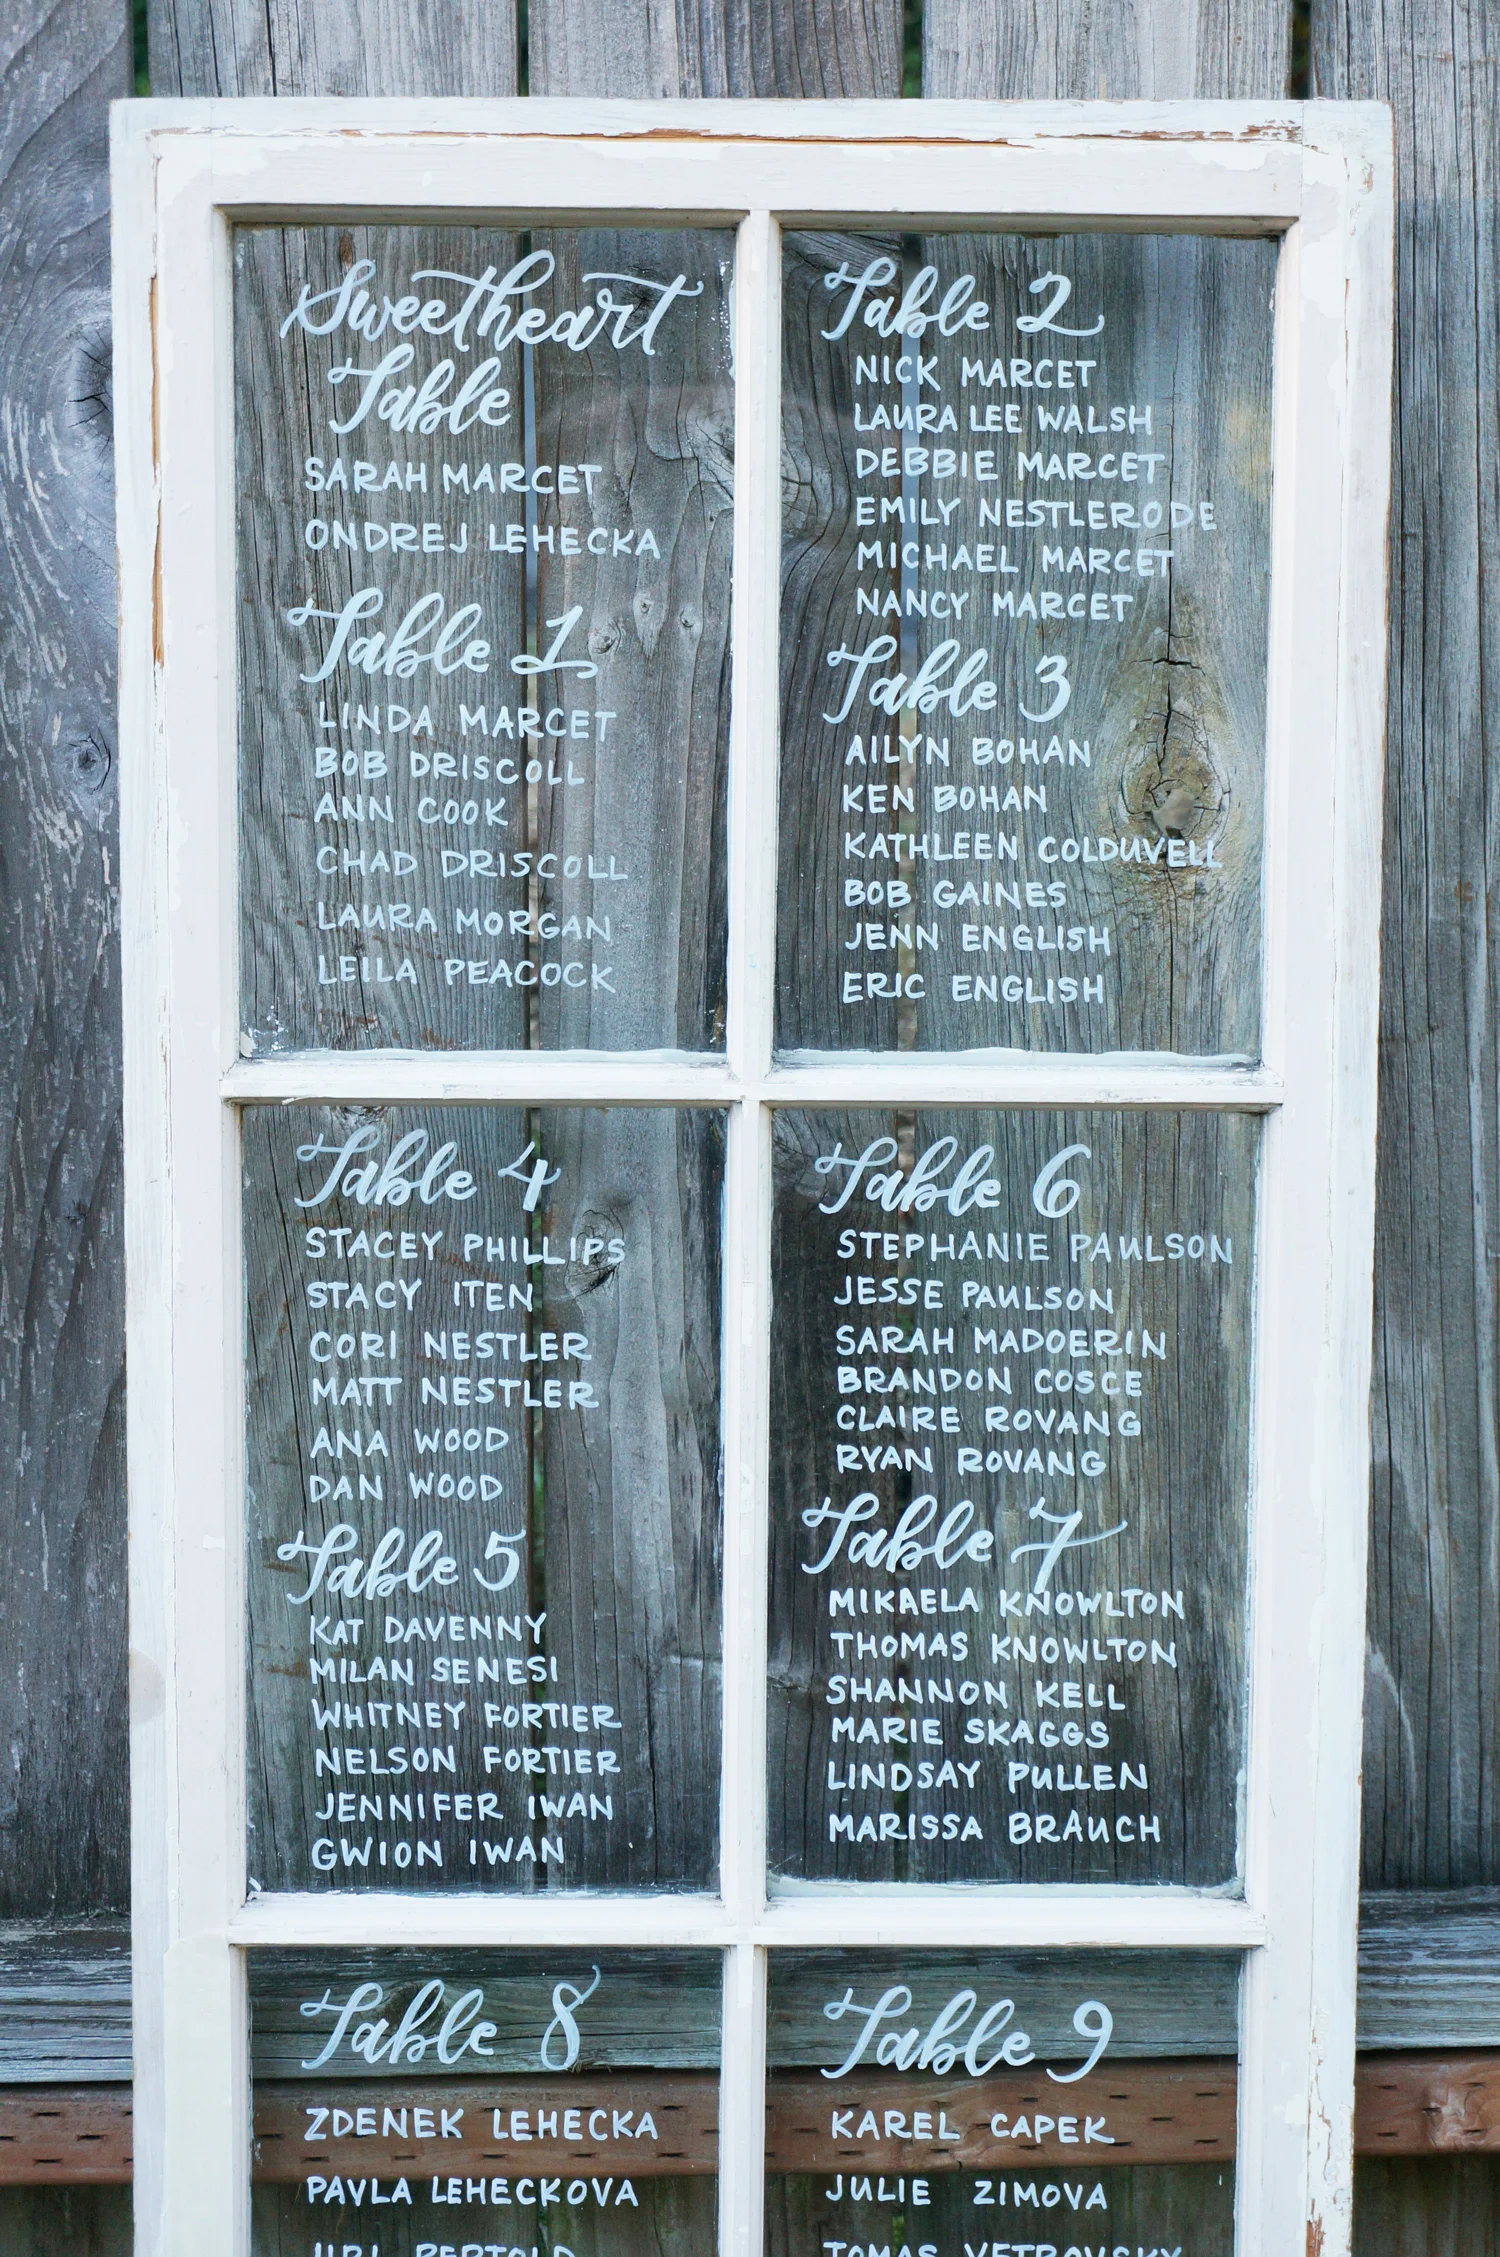 Sweetheart
Table
SARAH MARCET
ONDREJ LEHECKA
Table 1
LINDA MARCET
BOB DRISCOLL
ANN COOK
CHAD DRISCOLL
LAURA MORGAN
LEILA PEACOCK
Table 2
NICK MARCET
LAURA LEE WALSH
DEBBIE MARCET
EMILY NESTLERODE
MICHAEL MARCET
NANCY MARCET
Table 3
AILYN BOHAN
KEN BOHAN
KATHLEEN COLDUVELL
BOB GAINES
JENN ENGLISH
ERIC ENGLISH
Table 4
STACEY PHILLIPS
STACY ITEN
CORI NESTLER
MATT NESTLER
ANA WOOD
DAN WOOD
Table 5
KAT DAVENNY
MILAN SENESI
WHITNEY FORTIER
NELSON FORTIER
JENNIFER IWAN
GWION IWAN
Table 6
STEPHANIE PAULSON
JESSE PAULSON
SARAH MADOERIN
BRANDON COSCE
CLAIRE ROVANG
RYAN ROVANG
Table 7
MIKAELA KNOWLTON
THOMAS KNOWLTON
SHANNON KELL
MARIE SKAGGS
LINDSAY PULLEN
MARISSA BRAUCH
Table 8
ZDENEK LEHECKA
PAVLA LEHECKOVA
JIRI BERTOLD
Table 9
KAREL CAPEK
JULIE ZIMOVA
TOMAS VETROVSKY